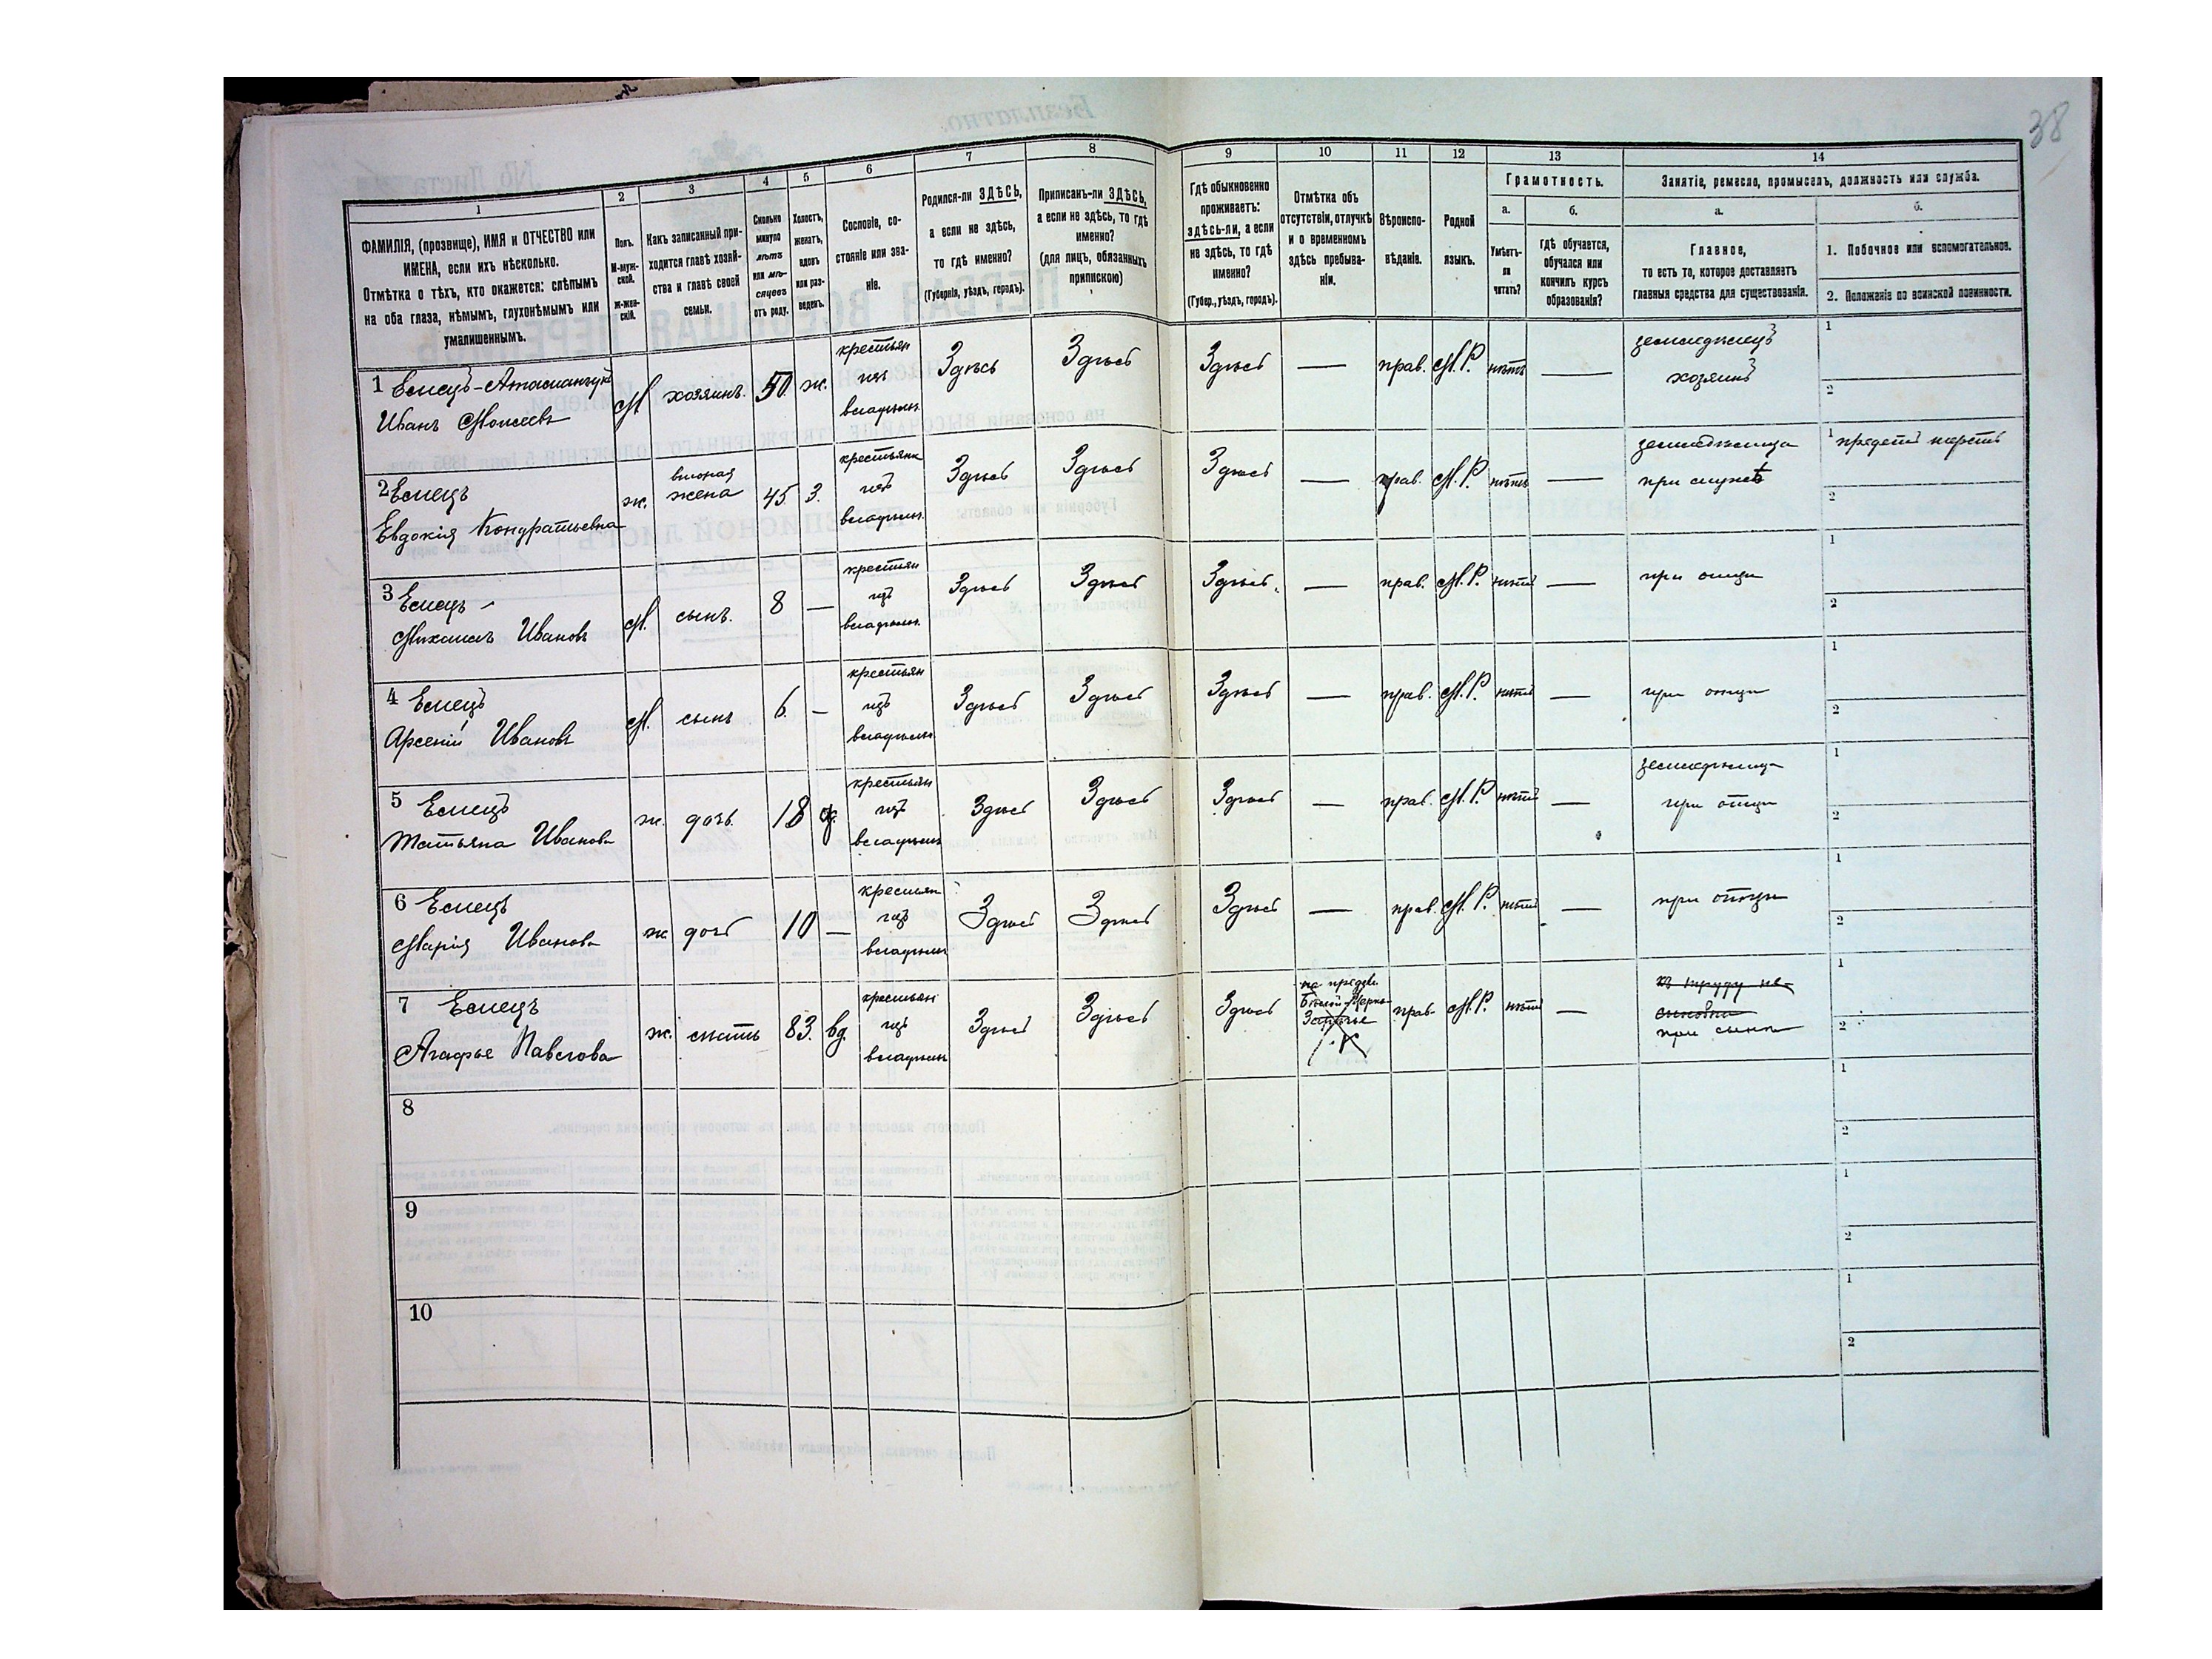 38
1
2
3
4
5
6
7
8
9
10
11
12
13
14
ФАМИЛІЯ, (прозвище), ИМЯ и ОТЧЕСТВО или
ИМЕНА, если ихъ нѣсколько.
Отмѣтка о тѣхъ, кто окажется: слѣпымъ
на оба глаза, нѣмымъ, глухонѣмымъ или
умалишеннымъ.
Полъ.
М-муж-
ской.
Ж-жен-
скій.
Какъ записанный при-
ходится главѣ хозяй-
ства и главѣ своей
семьи.
Сколько
минуло
лѣтъ
или мѣ-
сяцевъ
отъ роду.
Холостъ,
женатъ,
вдовъ
или раз-
веденъ.
Сословіе, со-
стояніе или зва-
ніе.
Родился-ли ЗДѢСЬ,
а если не здѣсь,
то гдѣ именно?
(Губернія, уѣздъ, городъ).
Приписанъ-ли ЗДѢСЬ,
а если не здѣсь, то гдѣ
именно?
(для лицъ, обязанныхъ
припискою)
Гдѣ обыкновенно
проживаетъ:
здѣсь-ли, а если
не здѣсь, то гдѣ
именно?
(Губер., уѣздъ, городъ).
Отмѣтка объ
отсутствіи, отлучкѣ
и о временномъ
здѣсь пребыва-
ніи.
Вѣроиспо-
вѣданіе.
Родной
языкъ.
Грамотность.
а.
Умѣетъ-
ли
читать?
б.
гдѣ обучается,
обучался или
кончилъ курсъ
образованія?
Занятіе, ремесло, промыселъ, должность или служба.
а.
Главное,
то есть то, которое доставляетъ
главныя средства для существованія.
б.
1. Побочное или вспомогательное.
2. Положеніе по воинской повинности.
1 Емецъ-
Иванъ Моисеевъ
М хозяинъ. 50. ж. крестьян изъ владѣльч. Здѣсь Здѣсь Здѣсь — прав. М.Р. нѣтъ — земледѣлецъ хозяинъ 1 2
2 Емецъ
Евдокія Кондратьевна
ж. вторая жена 45 3. крестьянк изъ владѣльч. Здѣсь Здѣсь Здѣсь — прав. М.Р. нѣтъ — земледѣлица при мужѣ 1 прядетъ шерсть 2
3 Емецъ
Михаилъ Ивановъ
М. сынъ. 8 — крестьян изъ владѣльч. Здѣсь Здѣсь Здѣсь. — прав. М.Р. нѣтъ — при отцѣ 1 2
4 Емецъ
Арсеній Ивановъ
М. сынъ 6. — крестьян изъ владѣльч. Здѣсь Здѣсь Здѣсь — прав. М.Р. нѣтъ — при отцѣ 1 2
5 Емецъ
Татьяна Иванова
ж. дочь. 18 д. крестьян изъ владѣльч Здѣсь Здѣсь Здѣсь — прав. М.Р. нѣтъ — земледѣлица при отцѣ 1 2
6 Емецъ
Марія Иванова
ж дочь 10 — крестьян изъ владѣльч Здѣсь Здѣсь Здѣсь — прав. М.Р. нѣтъ — при отцѣ 1 2
7 Емецъ
Агафья Павлова
ж. мать 83. вд. крестьян изъ владѣльч Здѣсь Здѣсь Здѣсь прав. М.Р. нѣтъ — къ труду не- при сынѣ 1 2
8 1 2
9 1 2
10 1 2